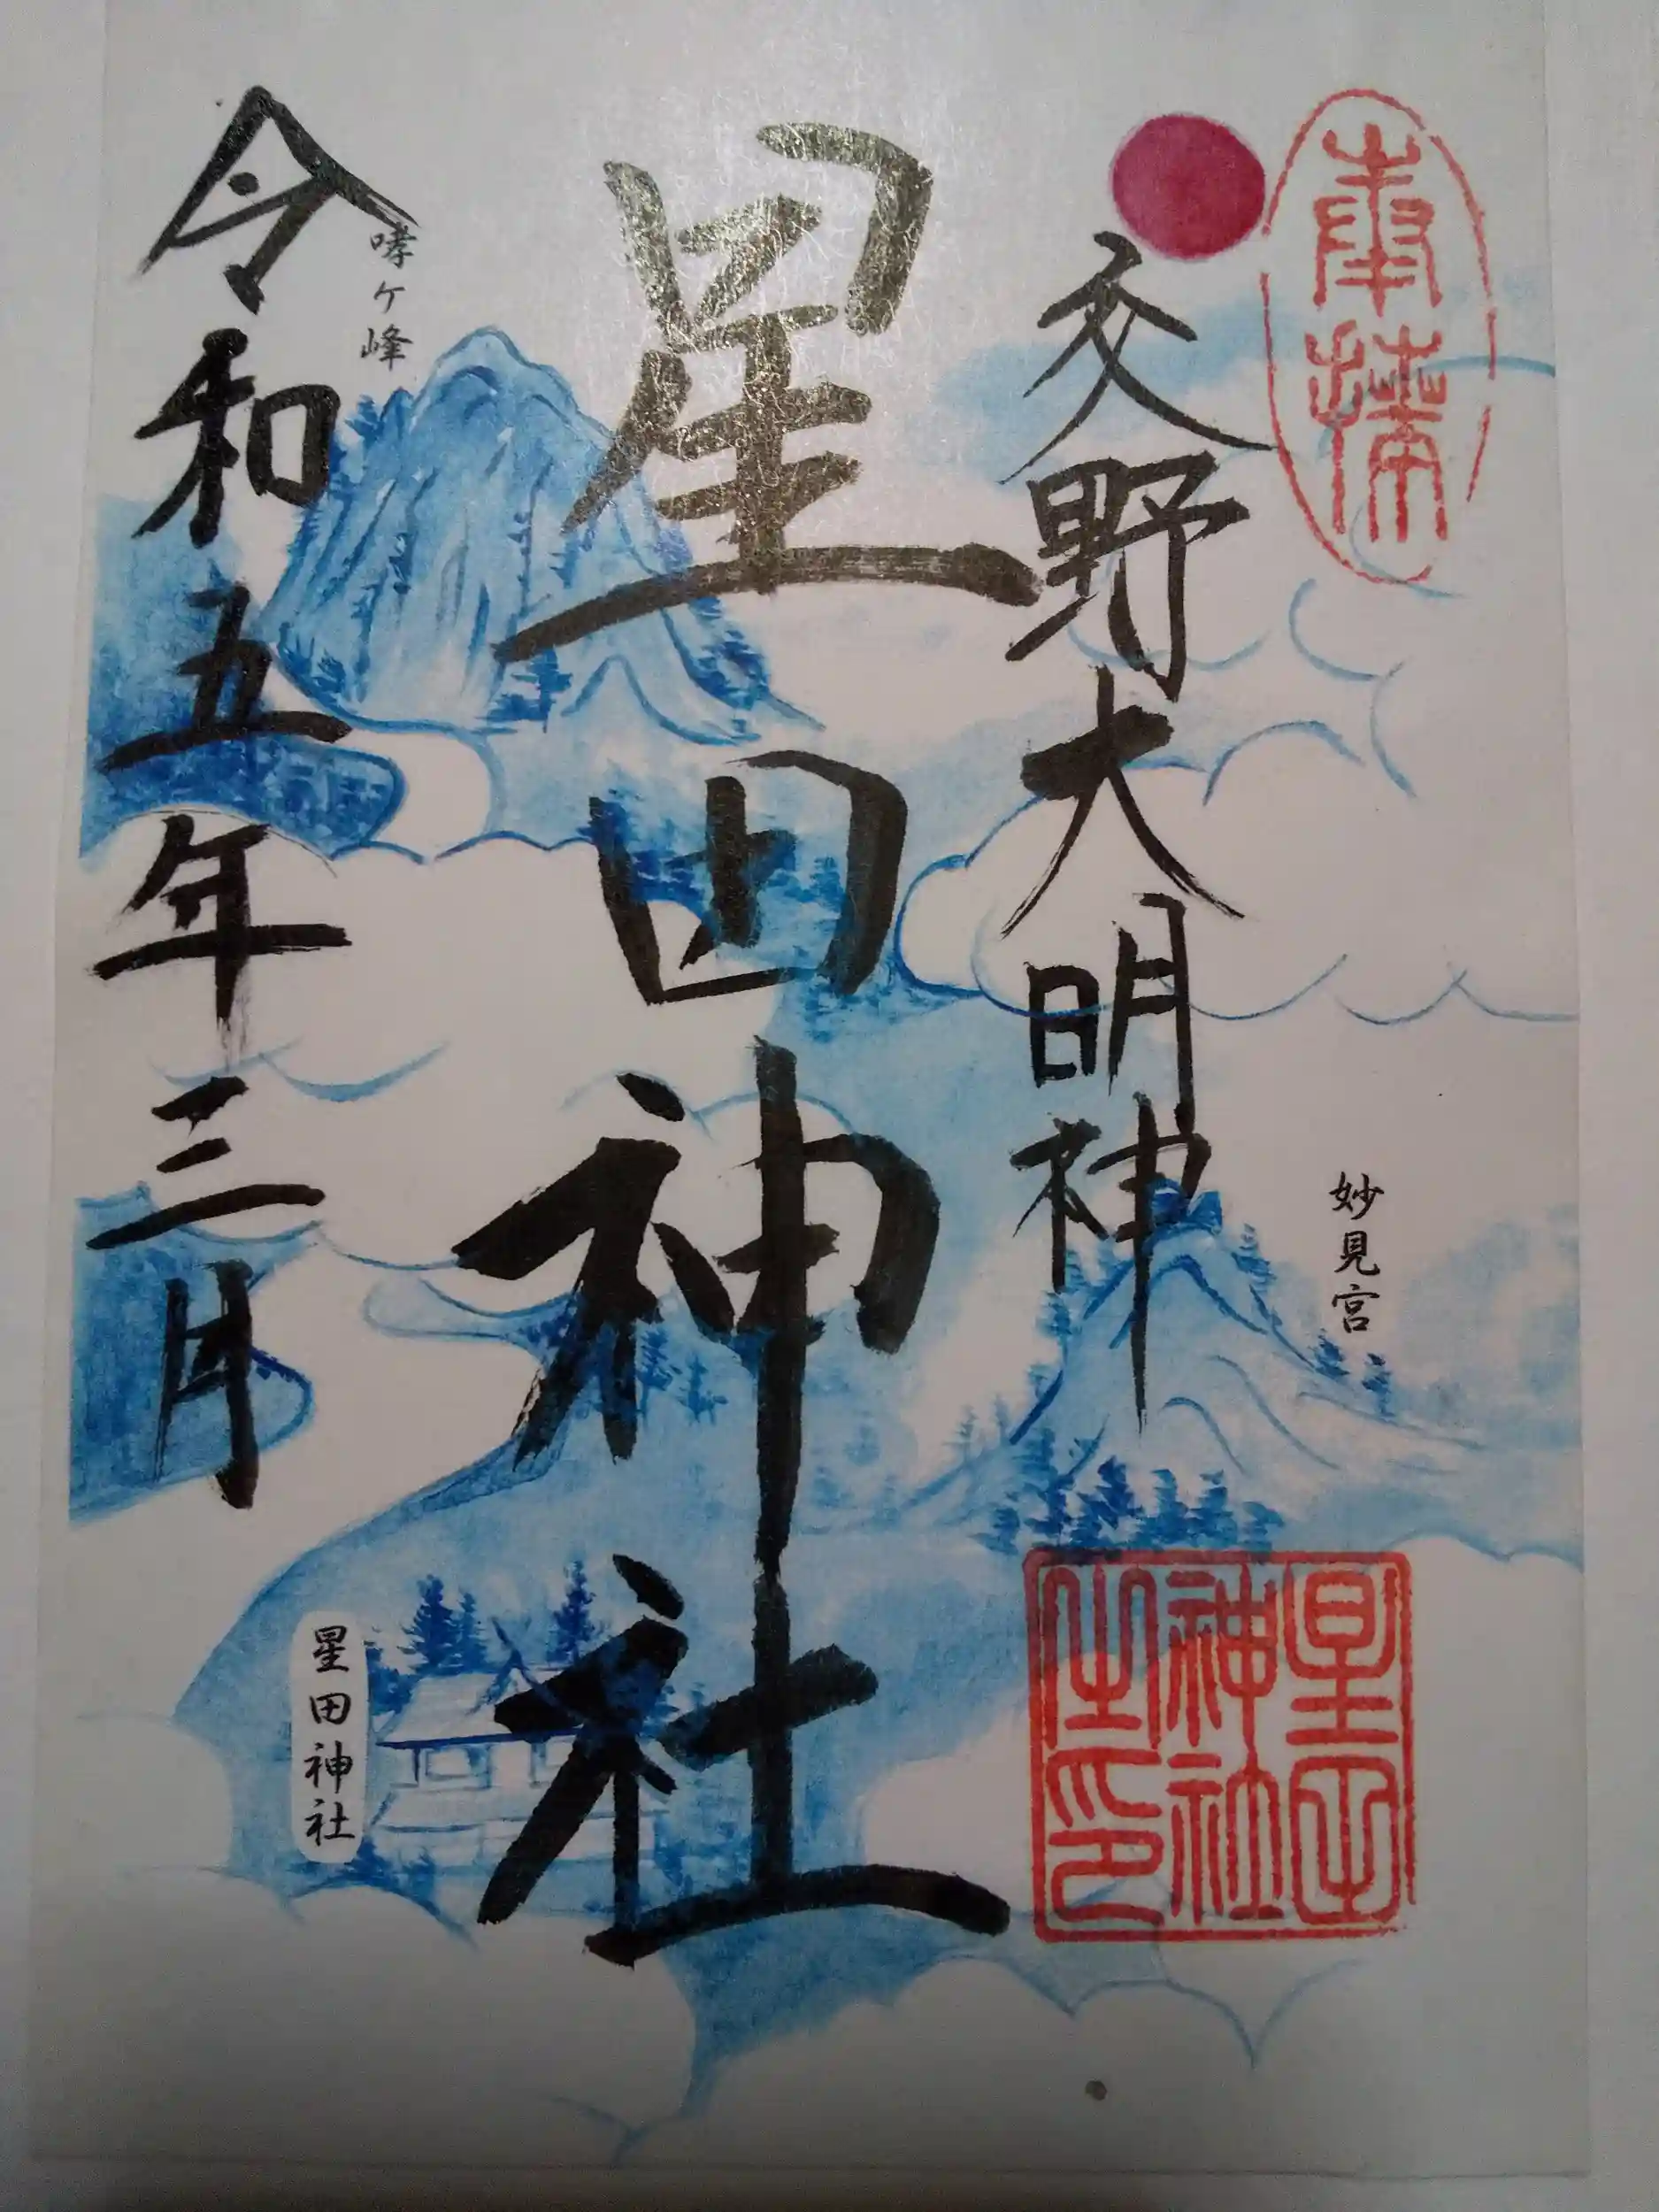 奉拝
交野大明神
妙見宮
星田神社之印
星田神社
哮ケ峰
星田神社
令和五年三月